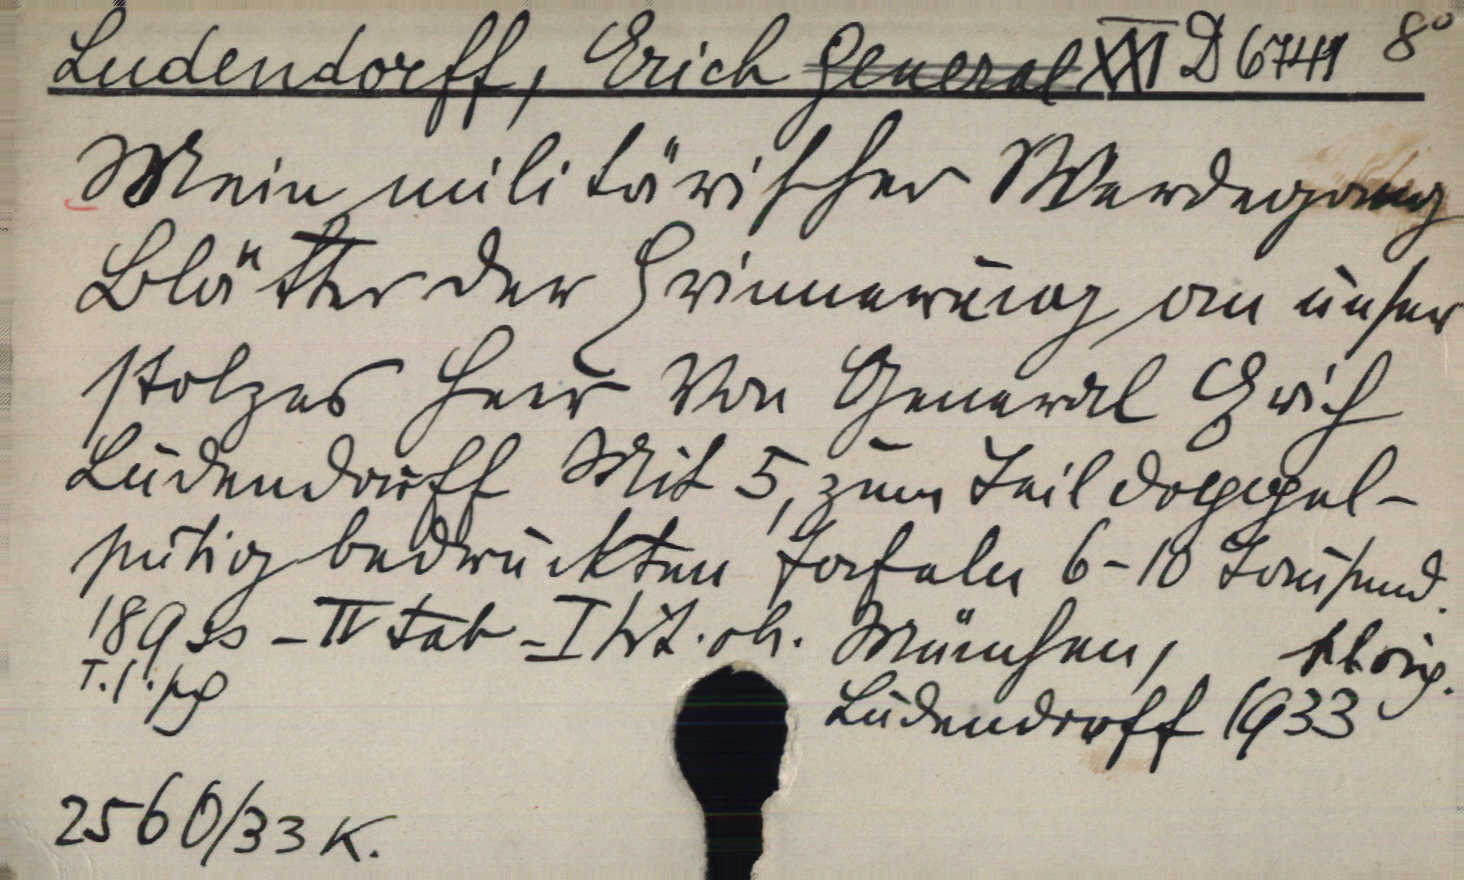 Ludendorff, Erich General XXI D 6741 8°
Mein militärischer Werdegang
Blätter der Erinnerung an unser
stolzes Heer Von General Erich
Ludendorff Mit 5, zum Teil doppel-
seitig bedruckten Tafeln 6-10 Tausend.
189 ss - IV tab - I
München,
T.
Ludendorff 1933
2560/33 K.